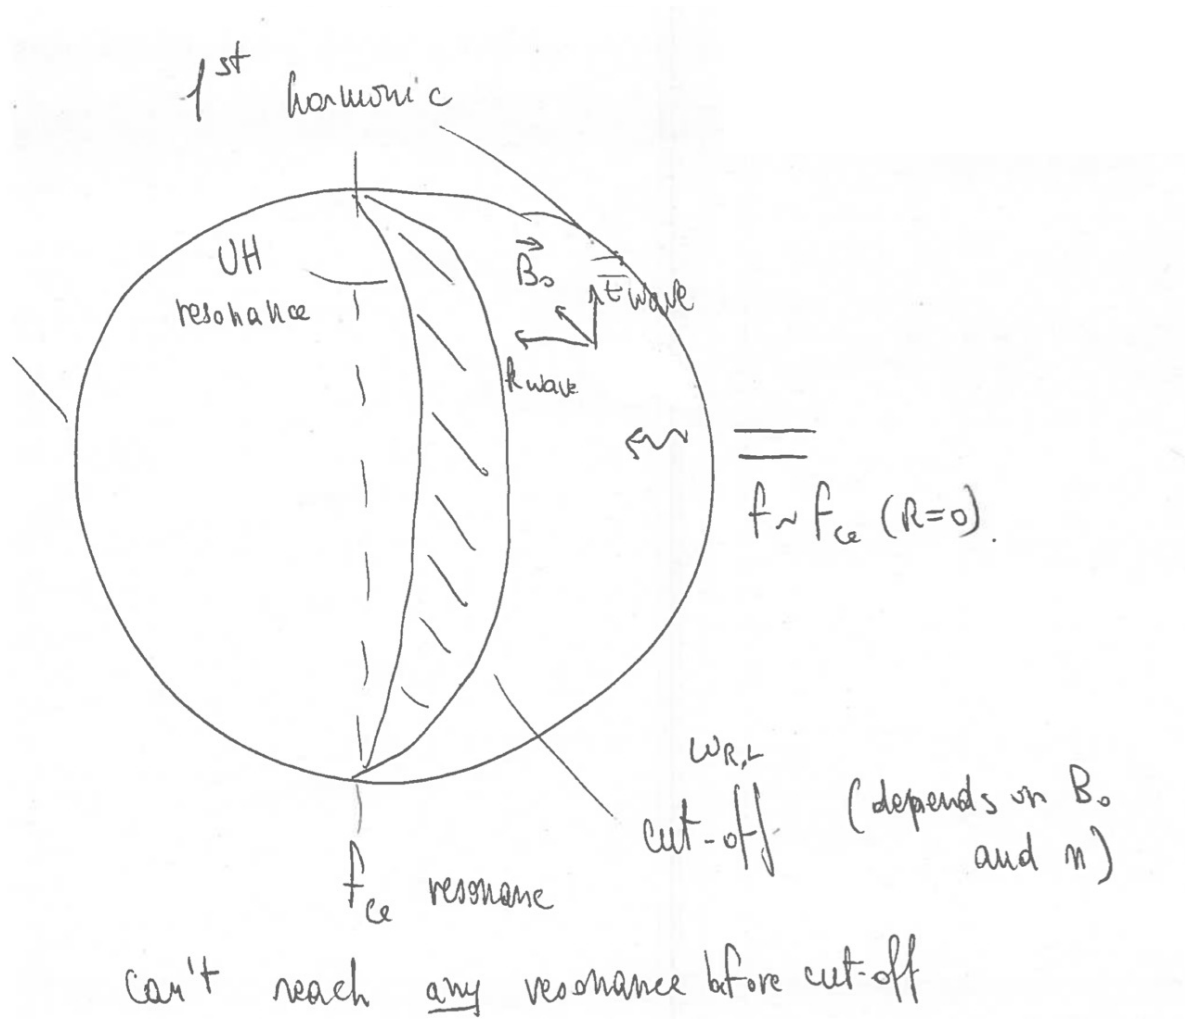 1st harmonic
UH
resonance
B₀
E wave
k wave
f ~ fce (R=0).
ωR,L
cut-off
(depends on B₀
and n)
fce resonane
can't reach any resonance before cut-off